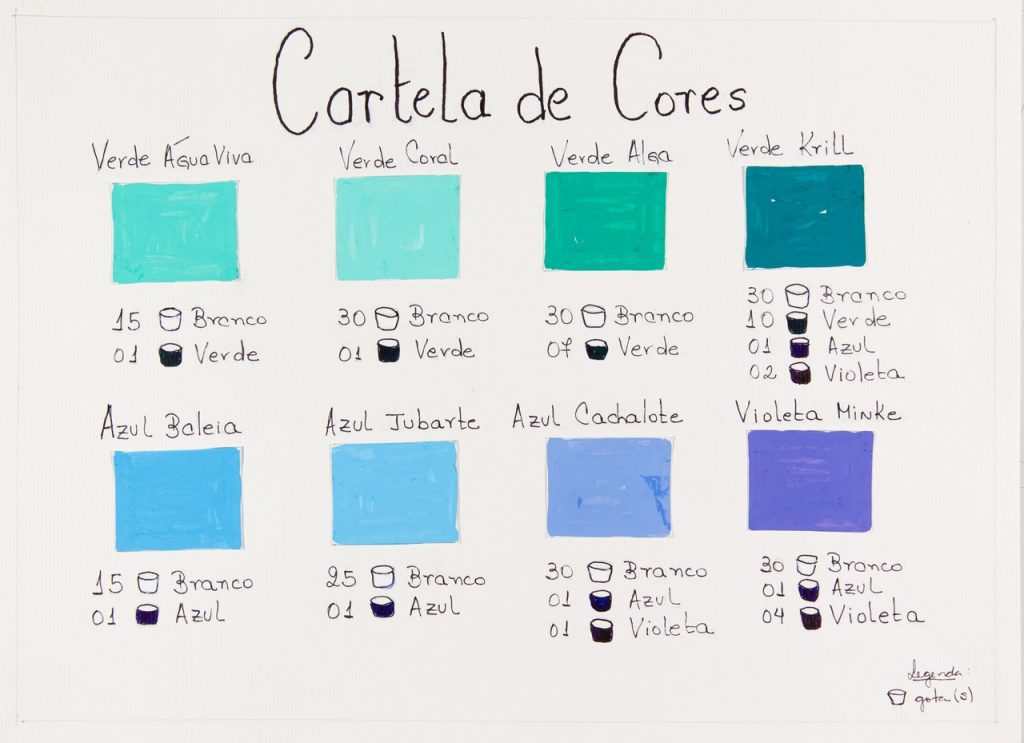 Cartela de Cores
Verde Água Viva
15 Branco
01 Verde
Verde Coral
30 Branco
01 Verde
Verde Alga
30 Branco
07 Verde
Verde Krill
30 Branco
10 Verde
01 Azul
02 Violeta
Azul Baleia
15 Branco
01 Azul
Azul Jubarte
25 Branco
01 Azul
Azul Cachalote
30 Branco
01 Azul
01 Violeta
Violeta Minke
30 Branco
01 Azul
04 Violeta
Legenda:
gota(s)